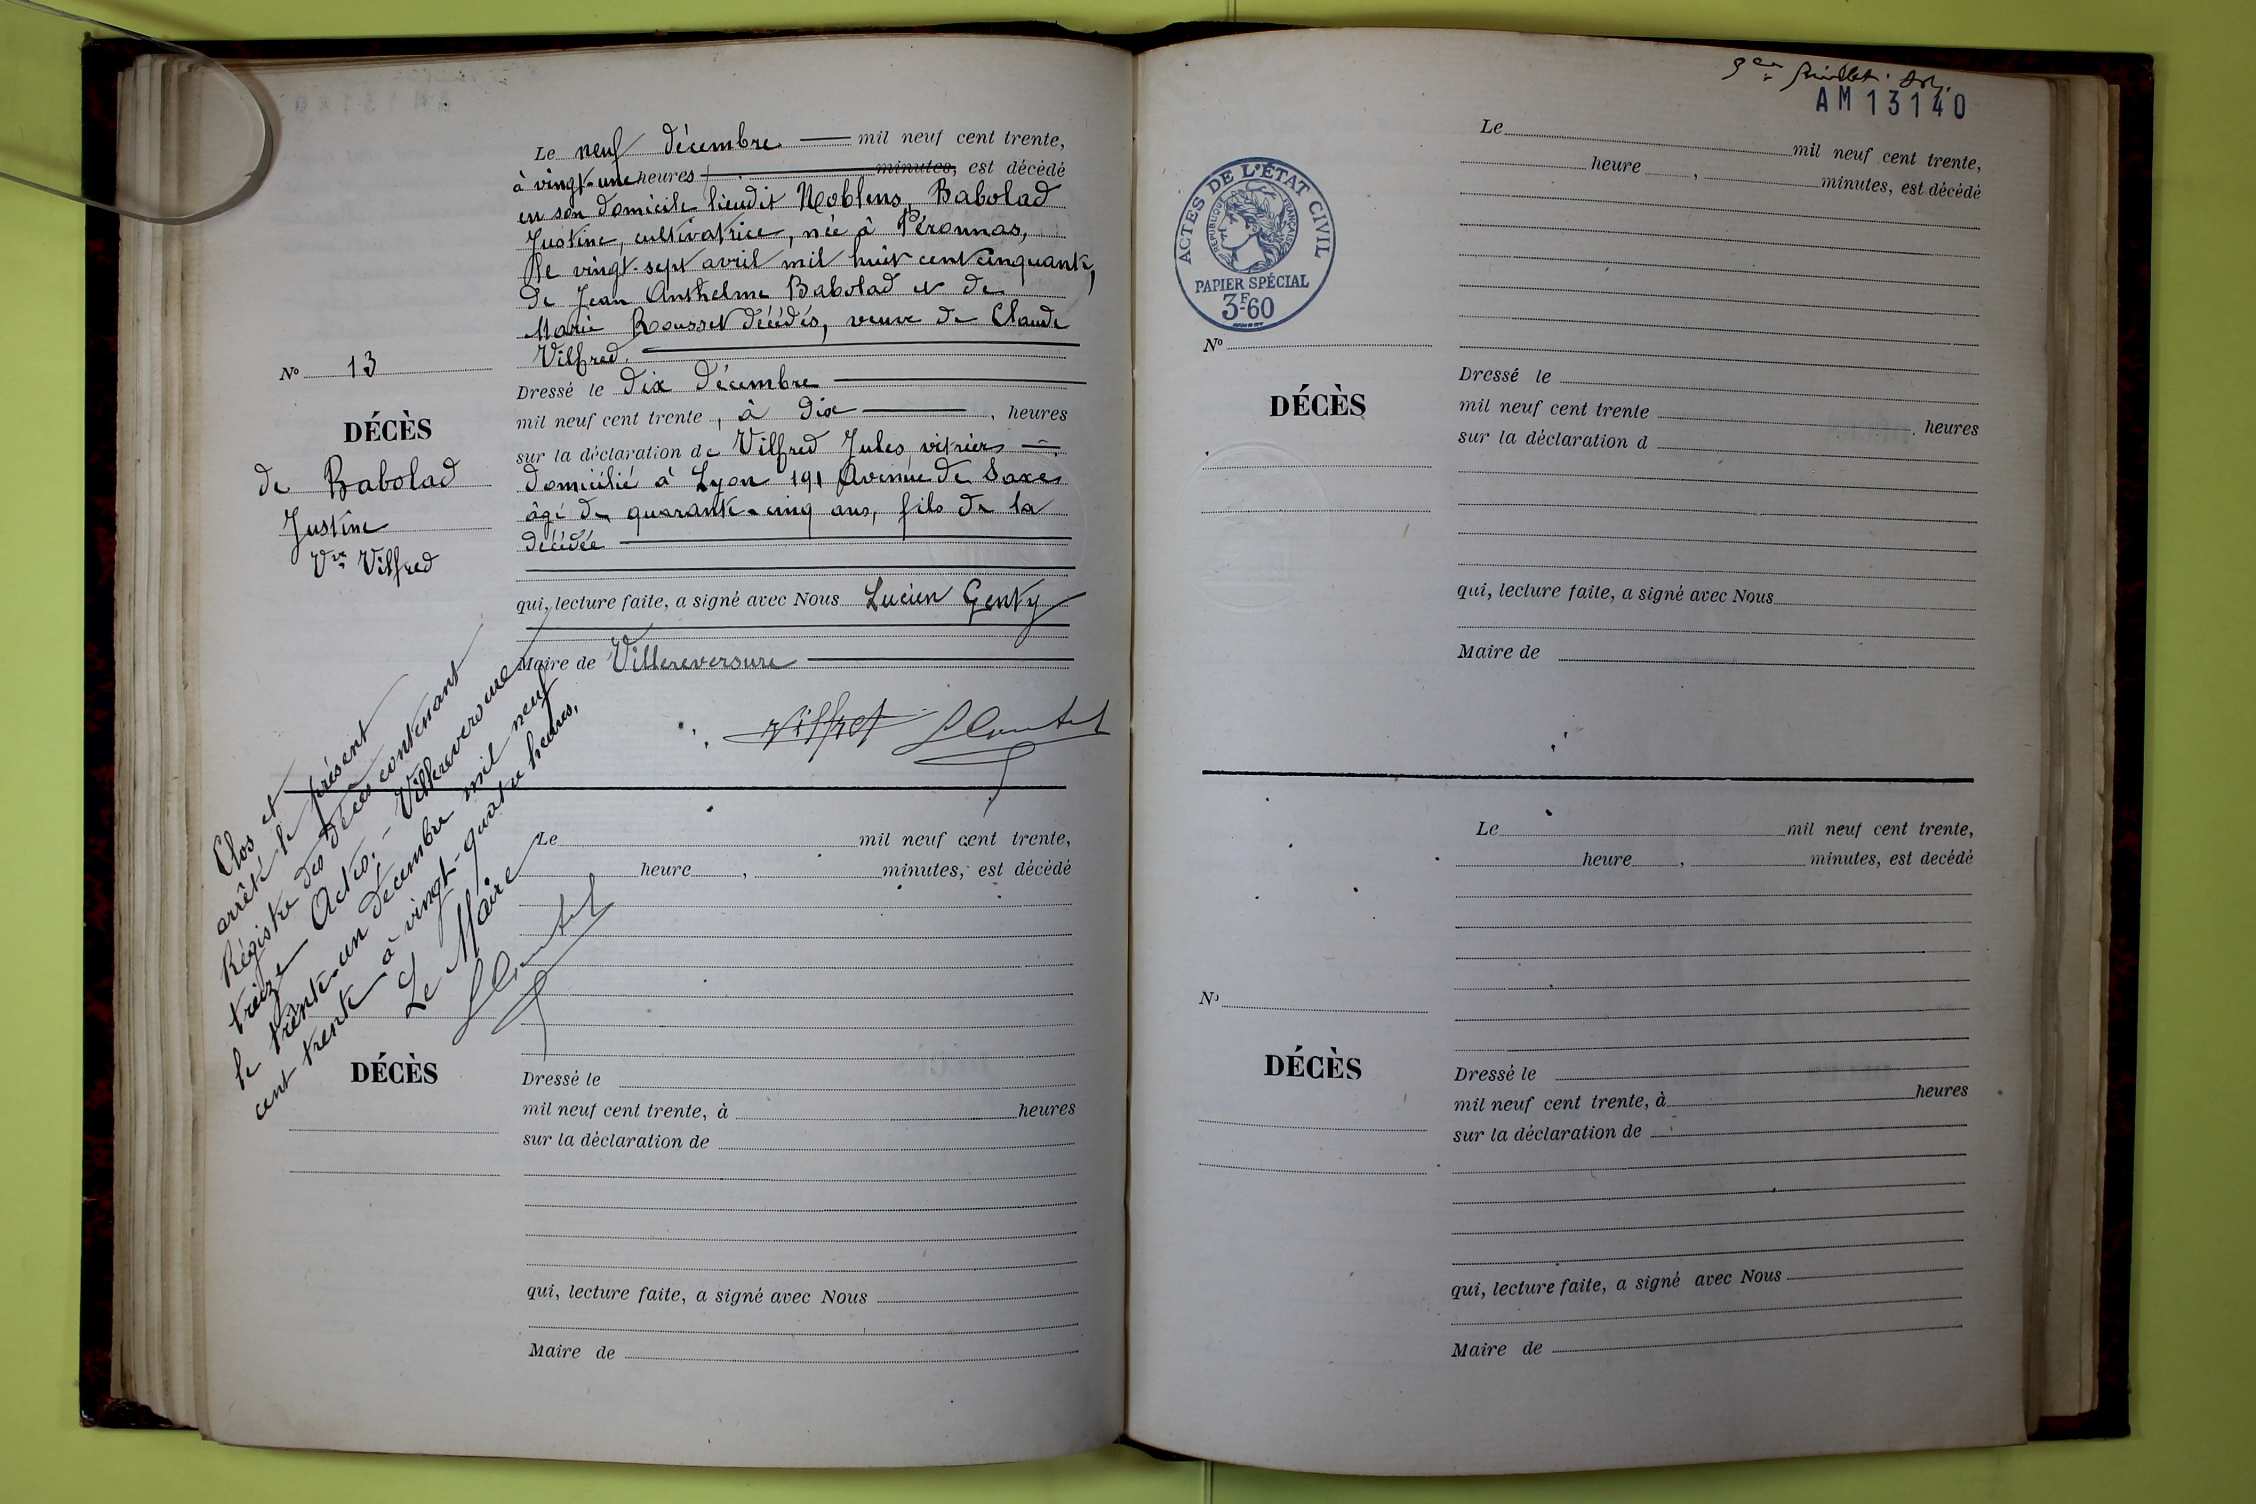 Le neuf décembre mil neuf cent trente,
à vingt-une heures minutes, est décédé
en son domicile lieudit Noblens, Babolad
Justine, cultivatrice, née à Péronnas,
le vingt-sept avril mil huit cent cinquante,
de Jean Anthelme Babolad et de
Marie Rousset décédés, veuve de Claude
Vilfred.
Nº 13
DÉCÈS
de Babolad
Justine
Vve Vilfred
Dressé le dix décembre
mil neuf cent trente, à dix, heures
sur la déclaration de Vilfred Jules vitrier
domicilié à Lyon 191 Avenue de Saxe
âgé de quarante-cinq ans, fils de la
décédée
qui, lecture faite, a signé avec Nous Lucien Genty
Maire de Villereversure
Vilfret
Clos et
arrêté le présent
Régistre des décès contenant
treize Actes. - Villereversure
le trente-un décembre mil neuf
cent trente à vingt-quatre heures,
Le Maire
Le mil neuf cent trente,
heure , minutes, est décédé
DÉCÈS
Dressé le
mil neuf cent trente, à heures
sur la déclaration de
qui, lecture faite, a signé avec Nous
Maire de
AM13140
ACTES DE L'ÉTAT CIVIL
RÉPUBLIQUE FRANÇAISE
PAPIER SPÉCIAL
3F-60
Le mil neuf cent trente,
heure , minutes, est décédé
Nº
DÉCÈS
Dressé le
mil neuf cent trente , heures
sur la déclaration d
qui, lecture faite, a signé avec Nous
Maire de
Le mil neuf cent trente,
heure , minutes, est decédé
Nº
DÉCÈS
Dressé le
mil neuf cent trente, à heures
sur la déclaration de
qui, lecture faite, a signé avec Nous
Maire de